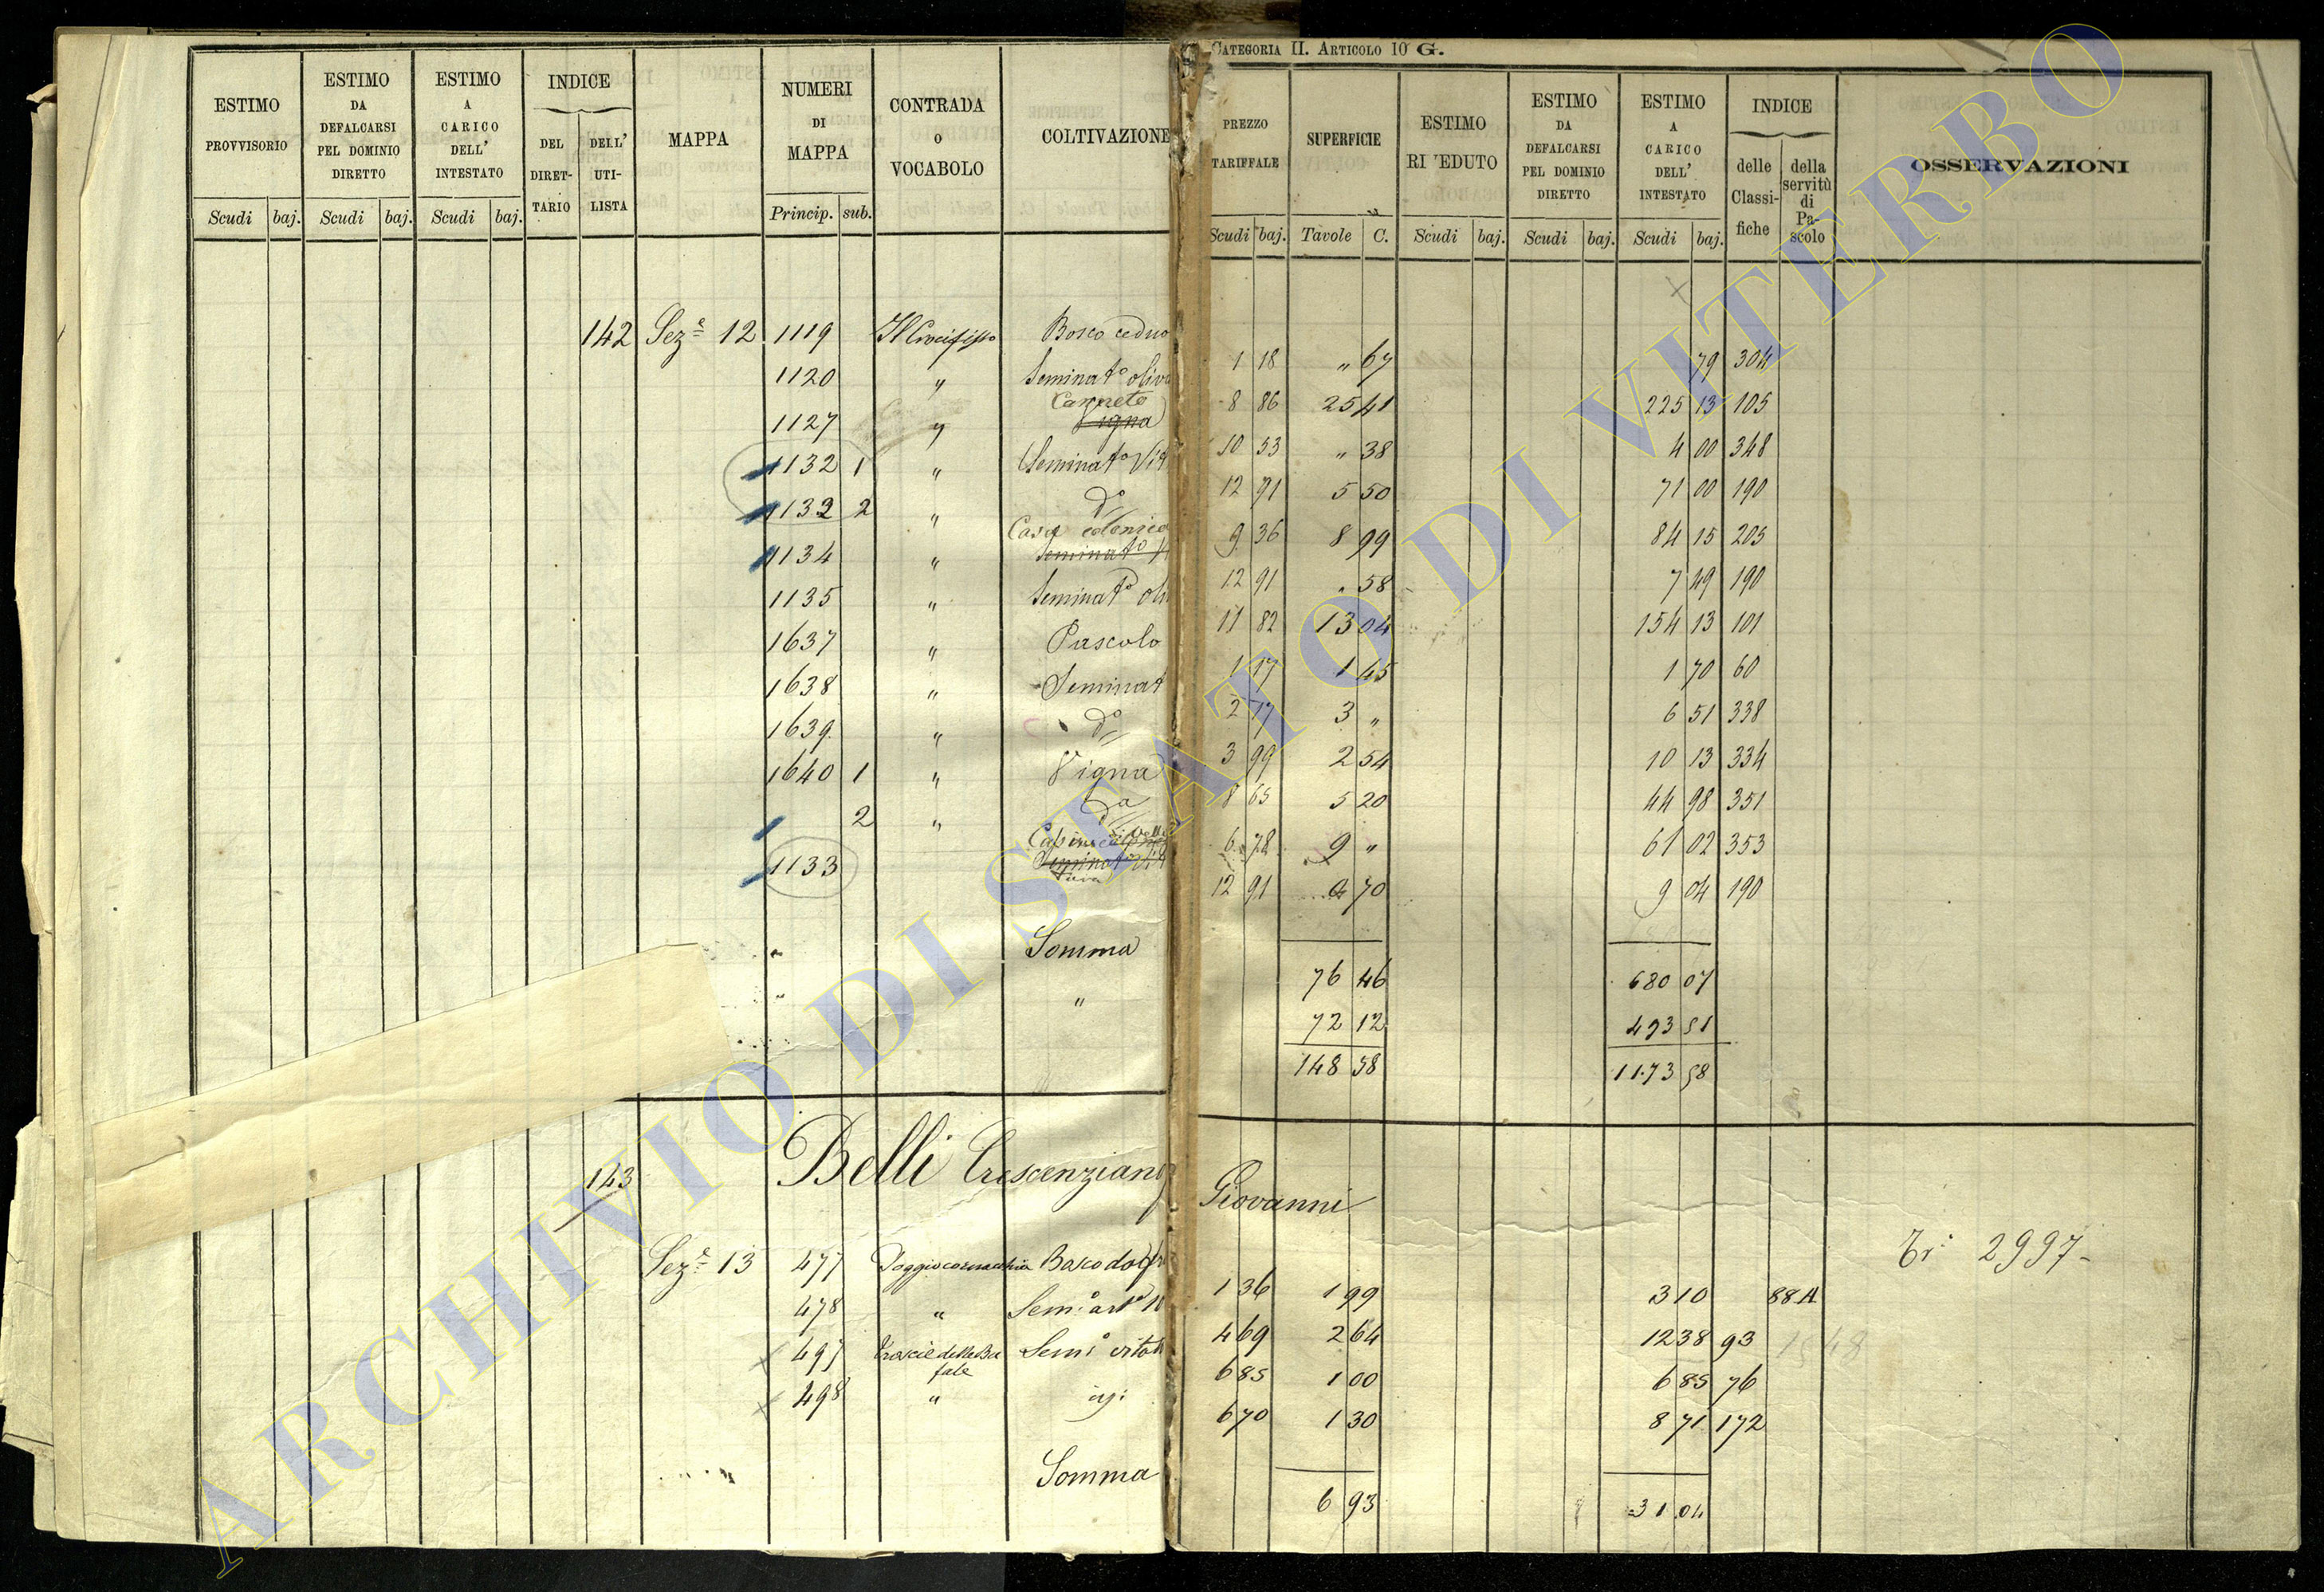 CATEGORIA II. ARTICOLO 10 G.
ESTIMO PROVVISORIO Scudi baj.
ESTIMO DA DEFALCARSI PEL DOMINIO DIRETTO Scudi baj.
ESTIMO A CARICO DELL' INTESTATO Scudi baj.
INDICE DEL DIRET-TARIO DELL' UTI-LISTA
MAPPA
NUMERI DI MAPPA Princip. sub.
CONTRADA o VOCABOLO
COLTIVAZIONE
PREZZO TARIFFALE Scudi baj.
SUPERFICIE Tavole C.
ESTIMO RI EDUTO Scudi baj.
ESTIMO DA DEFALCARSI PEL DOMINIO DIRETTO Scudi baj.
ESTIMO A CARICO DELL' INTESTATO Scudi baj.
INDICE delle Classi-fiche della servitù di Pa-scolo
OSSERVAZIONI
142 Sez.e 12 1119 Il Crocifisso Bosco ceduo 1 18 " 67 79 304
1120 " Seminat.o oliva 8 86 25 41 225 13 105
1127 " Canneto Vigna 10 53 " 38 4 00 348
1132 1 " Seminat.o Vit 12 91 5 50 71 00 190
1132 2 " d.o 9 36 8 99 84 15 205
1134 " Casa colonica Seminat.o 12 91 " 58 7 49 190
1135 " Seminat.o oli 11 82 13 04 154 13 101
1637 " Pascolo 1 17 1 45 1 70 60
1638 " Seminat 2 17 3 " 6 51 338
1639 " d.o 3 99 2 54 10 13 334
1640 1 " Vigna 8 65 5 20 44 98 351
2 " d.a 6 78 9 " 61 02 353
1133 Seminat.o 12 91 70 9 04 190
Somma 76 46 680 07
" 72 12 493 51
148 58 1173 58
143 Belli Crescenziano Giovanni
Tr. 2997
Sez.e 13 477 Poggiocornacchia Bosco dol fr 1 36 1 99 3 10 88 A
478 " Sem.o art.o 4 69 2 64 12 38 93
497 Troscie delle Bu fale Sem.o vitat 6 85 1 00 6 85 76
498 " 6 70 1 30 8 71 172
Somma 6 93 31 04
ARCHIVIO DI STATO DI VITERBO